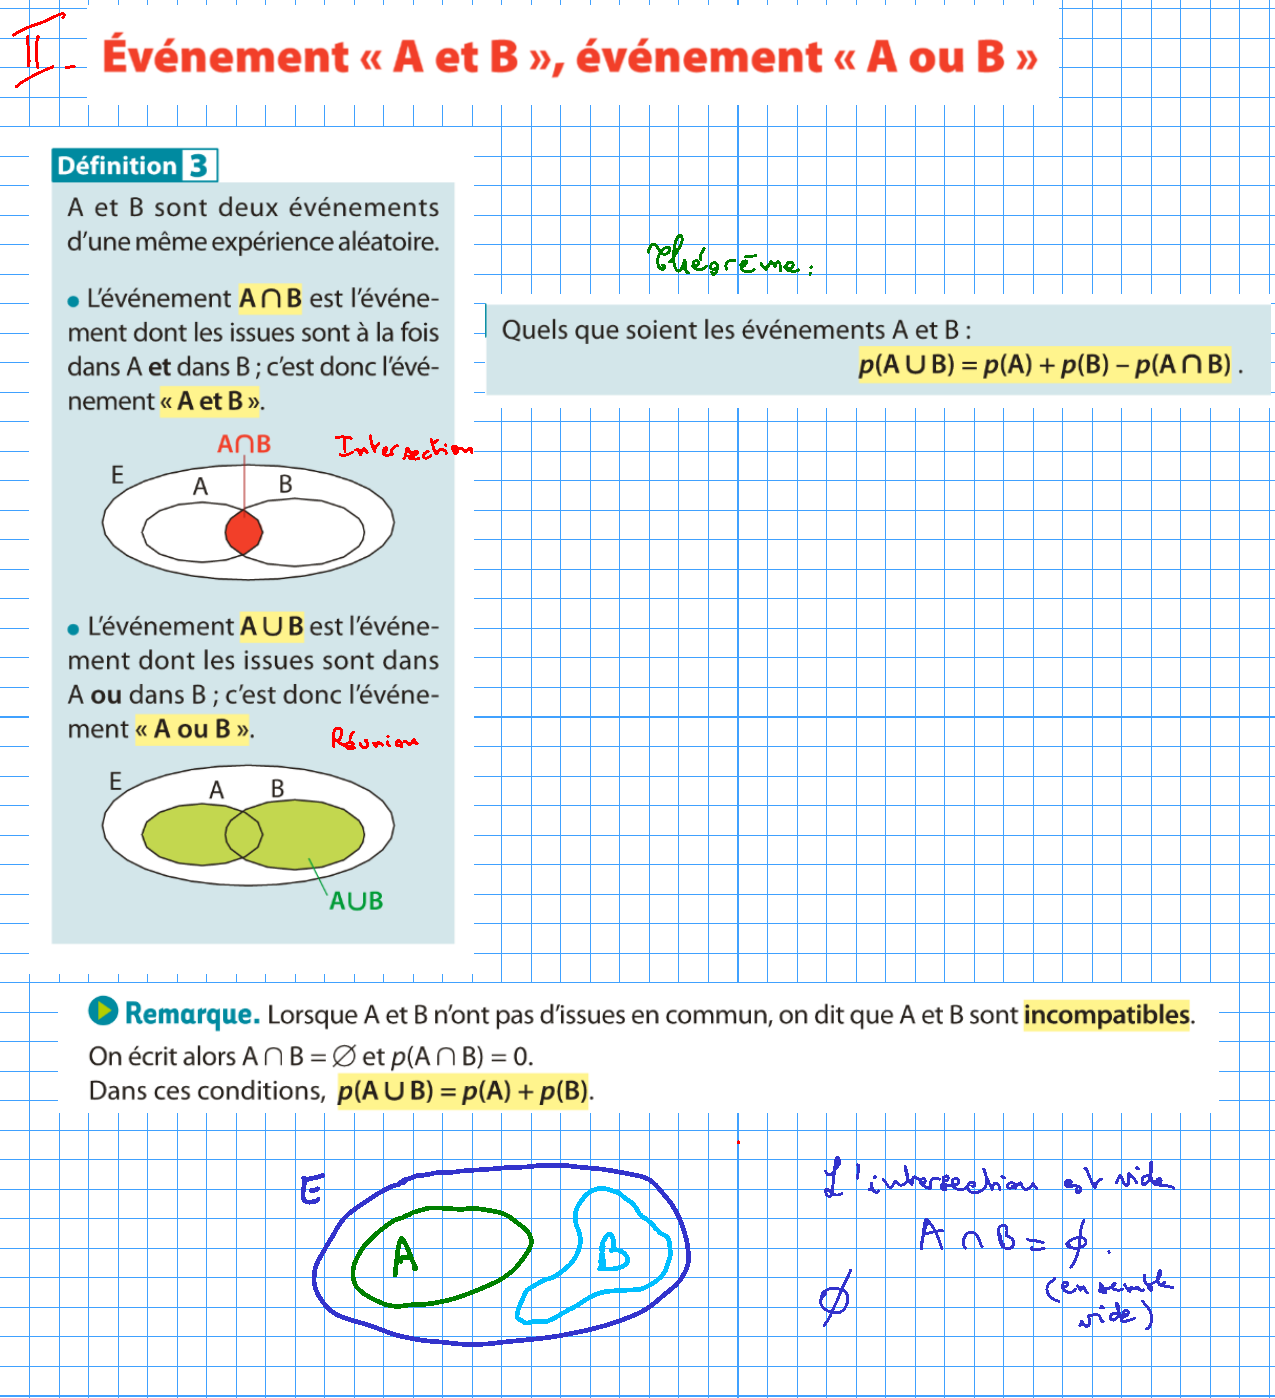 II.
Événement « A et B », événement « A ou B »
Définition 3
A et B sont deux événements
d'une même expérience aléatoire.
• L'événement A ∩ B est l'événe-
ment dont les issues sont à la fois
dans A et dans B ; c'est donc l'évé-
nement « A et B ».
A∩B
Intersection
E
A
B
• L'événement A ∪ B est l'événe-
ment dont les issues sont dans
A ou dans B ; c'est donc l'événe-
ment « A ou B ».
Réunion
E
A
B
A∪B
Théorème :
Quels que soient les événements A et B :
p(A ∪ B) = p(A) + p(B) – p(A ∩ B) .
Remarque. Lorsque A et B n'ont pas d'issues en commun, on dit que A et B sont incompatibles.
On écrit alors A ∩ B = ∅ et p(A ∩ B) = 0.
Dans ces conditions, p(A ∪ B) = p(A) + p(B).
E
A
B
L'intersection est vide
A ∩ B = ∅.
(ensemble
vide)
∅